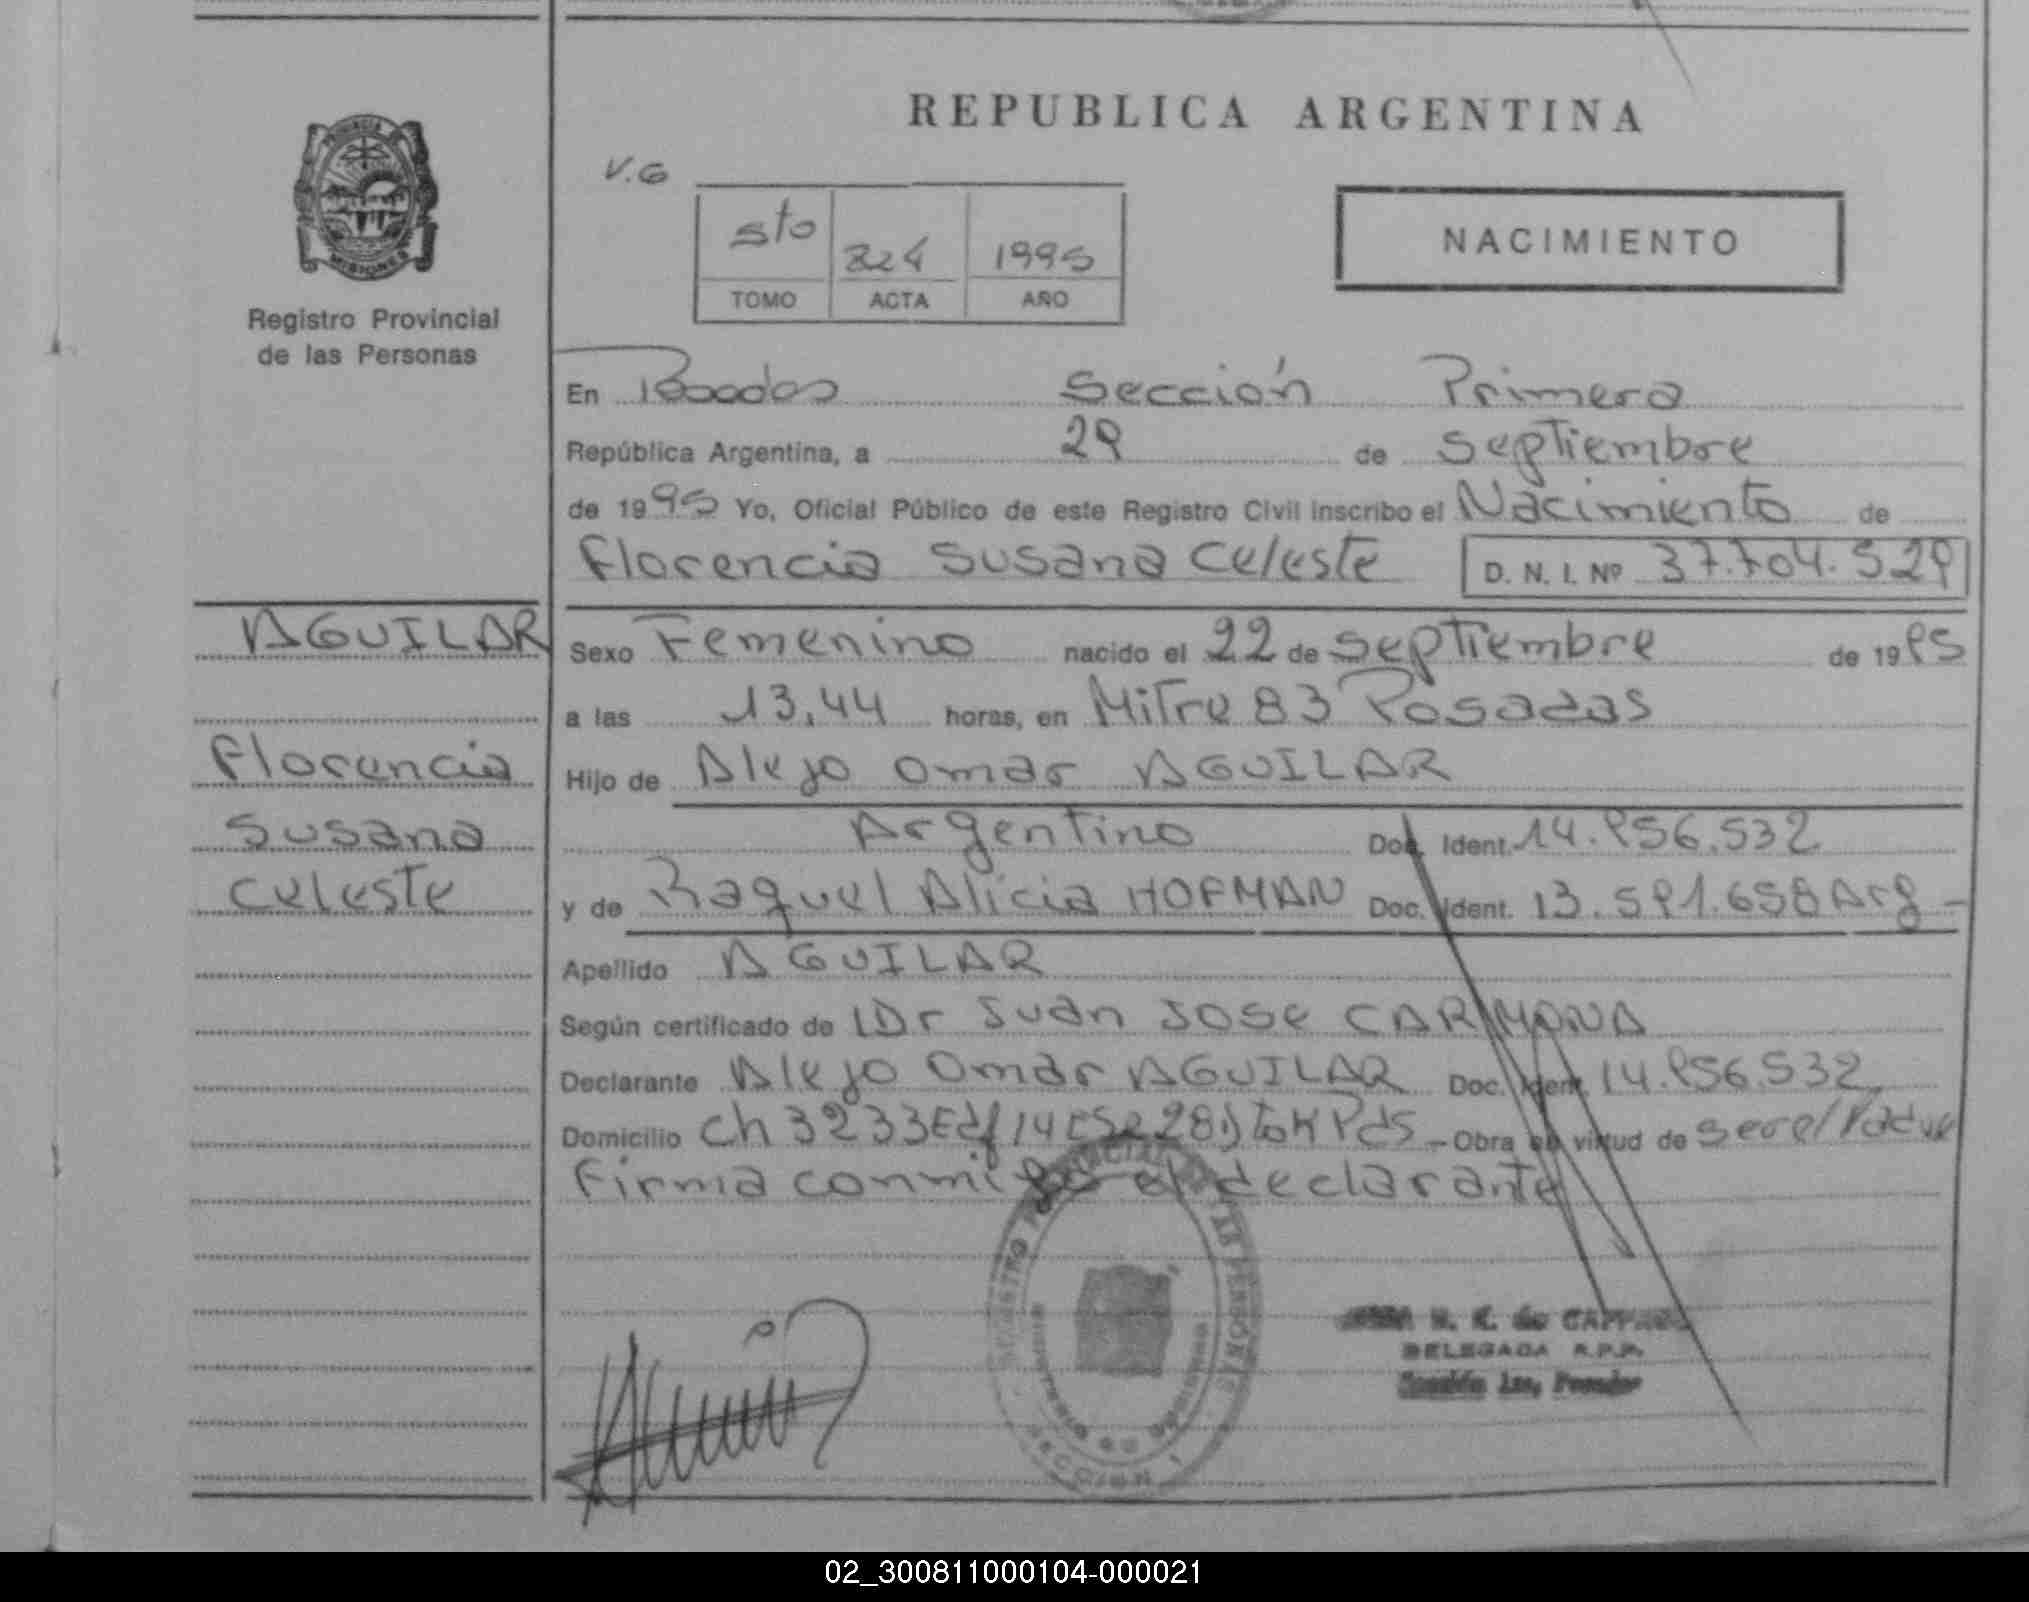 REPUBLICA ARGENTINA
V.G
5to 324 1995
TOMO ACTA AÑO
NACIMIENTO
PROVINCIA DE
MISIONES
Registro Provincial
de las Personas
En Posadas Sección Primera
República Argentina, a 29 de Septiembre
de 1995 Yo, Oficial Público de este Registro Civil inscribo el Nacimiento de
Florencia Susana Celeste D. N. I. Nº 37.704.529
AGUILAR
Florencia
Susana
Celeste
Sexo Femenino nacido el 22 de Septiembre de 1995
a las 13,44 horas, en Mitre 83 Posadas
Hijo de Alejo Omar AGUILAR
Argentino Doc. Ident. 14.956.532
y de Raquel Alicia HOFMAN Doc. Ident. 13.591.658 Arg -
Apellido AGUILAR
Según certificado de Dr Juan Jose CARMONA
Declarante Alejo Omar AGUILAR Doc. Ident. 14.956.532
Domicilio Ch 32 33 Edf 14 Pds - Obra en virtud de ser el Padre
Firma conmigo el declarante
DELEGADA R.P.P.
Sección 1ra, Posadas
02_300811000104-000021